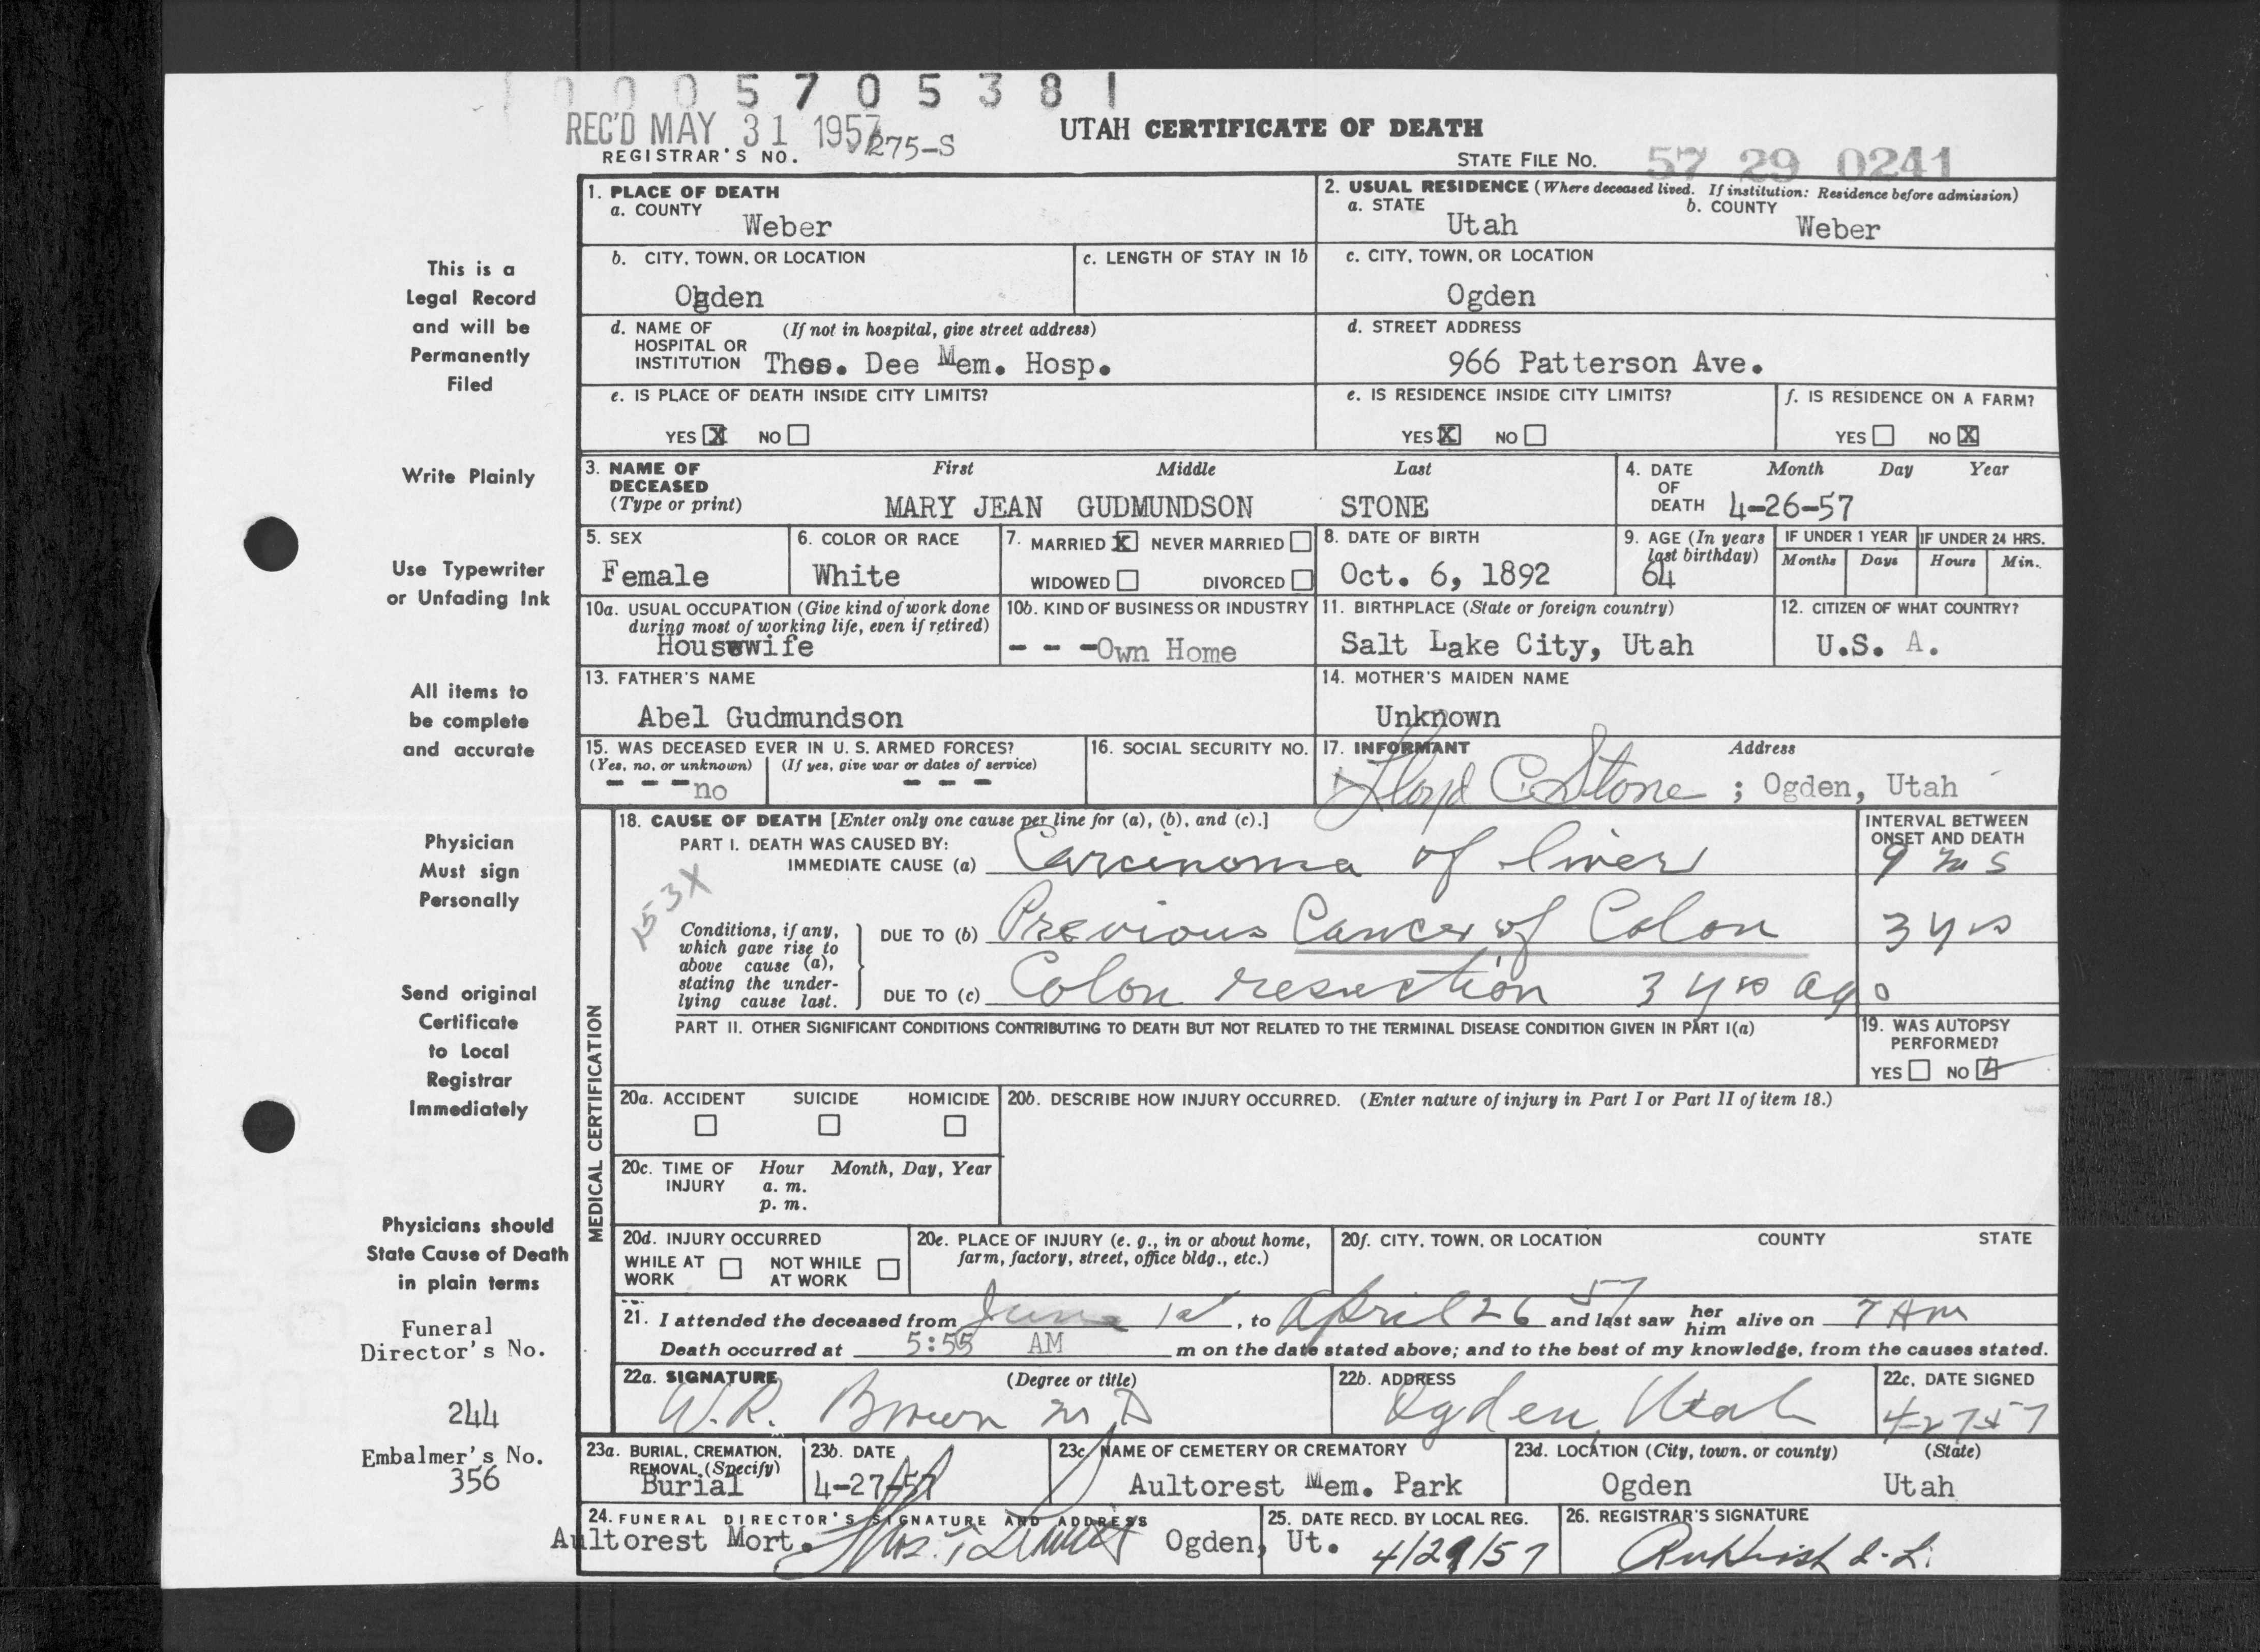 0005705381
REC'D MAY 31 1957
275-S
UTAH CERTIFICATE OF DEATH
REGISTRAR'S NO.
STATE FILE NO. 57 29 0241
1. PLACE OF DEATH
a. COUNTY
Weber
2. USUAL RESIDENCE (Where deceased lived. If institution: Residence before admission)
a. STATE
Utah
b. COUNTY
Weber
b. CITY, TOWN, OR LOCATION
Ogden
c. LENGTH OF STAY IN 1b
c. CITY, TOWN, OR LOCATION
Ogden
d. NAME OF HOSPITAL OR INSTITUTION (If not in hospital, give street address)
Thos. Dee Mem. Hosp.
d. STREET ADDRESS
966 Patterson Ave.
e. IS PLACE OF DEATH INSIDE CITY LIMITS?
YES X NO
e. IS RESIDENCE INSIDE CITY LIMITS?
YES X NO
f. IS RESIDENCE ON A FARM?
YES NO X
3. NAME OF DECEASED (Type or print)
First Middle Last
MARY JEAN GUDMUNDSON STONE
4. DATE OF DEATH
Month Day Year
4-26-57
5. SEX
Female
6. COLOR OR RACE
White
7. MARRIED X NEVER MARRIED
WIDOWED DIVORCED
8. DATE OF BIRTH
Oct. 6, 1892
9. AGE (In years last birthday)
64
IF UNDER 1 YEAR
Months Days
IF UNDER 24 HRS.
Hours Min.
10a. USUAL OCCUPATION (Give kind of work done during most of working life, even if retired)
Housewife
10b. KIND OF BUSINESS OR INDUSTRY
- - -Own Home
11. BIRTHPLACE (State or foreign country)
Salt Lake City, Utah
12. CITIZEN OF WHAT COUNTRY?
U.S. A.
13. FATHER'S NAME
Abel Gudmundson
14. MOTHER'S MAIDEN NAME
Unknown
15. WAS DECEASED EVER IN U. S. ARMED FORCES?
(Yes, no, or unknown) (If yes, give war or dates of service)
- - -no - - -
16. SOCIAL SECURITY NO.
17. INFORMANT Address
Lloyd C. Stone ; Ogden, Utah
18. CAUSE OF DEATH [Enter only one cause per line for (a), (b), and (c).]
PART I. DEATH WAS CAUSED BY:
IMMEDIATE CAUSE (a) Carcinoma of liver
INTERVAL BETWEEN ONSET AND DEATH
9 ms
153X
Conditions, if any, which gave rise to above cause (a), stating the underlying cause last.
DUE TO (b) Previous Cancer of Colon 3 yrs
DUE TO (c) Colon resection 3 yrs ago
PART II. OTHER SIGNIFICANT CONDITIONS CONTRIBUTING TO DEATH BUT NOT RELATED TO THE TERMINAL DISEASE CONDITION GIVEN IN PART I(a)
19. WAS AUTOPSY PERFORMED?
YES NO
MEDICAL CERTIFICATION
20a. ACCIDENT SUICIDE HOMICIDE
20b. DESCRIBE HOW INJURY OCCURRED. (Enter nature of injury in Part I or Part II of item 18.)
20c. TIME OF INJURY Hour Month, Day, Year
a. m.
p. m.
20d. INJURY OCCURRED
WHILE AT WORK NOT WHILE AT WORK
20e. PLACE OF INJURY (e. g., in or about home, farm, factory, street, office bldg., etc.)
20f. CITY, TOWN, OR LOCATION COUNTY STATE
21. I attended the deceased from June 1st, to April 26 57 and last saw her him alive on 7 AM
Death occurred at 5:55 AM m on the date stated above; and to the best of my knowledge, from the causes stated.
22a. SIGNATURE (Degree or title)
W.R. Brown M D
22b. ADDRESS
Ogden, Utah
22c. DATE SIGNED
4-27-57
23a. BURIAL, CREMATION, REMOVAL (Specify)
Burial
23b. DATE
4-27-57
23c. NAME OF CEMETERY OR CREMATORY
Aultorest Mem. Park
23d. LOCATION (City, town, or county) (State)
Ogden Utah
24. FUNERAL DIRECTOR'S SIGNATURE AND ADDRESS
Aultorest Mort. Ogden, Ut.
25. DATE RECD. BY LOCAL REG.
4/29/57
26. REGISTRAR'S SIGNATURE
This is a
Legal Record
and will be
Permanently
Filed
Write Plainly
Use Typewriter
or Unfading Ink
All items to
be complete
and accurate
Physician
Must sign
Personally
Send original
Certificate
to Local
Registrar
Immediately
Physicians should
State Cause of Death
in plain terms
Funeral
Director's No.
244
Embalmer's No.
356